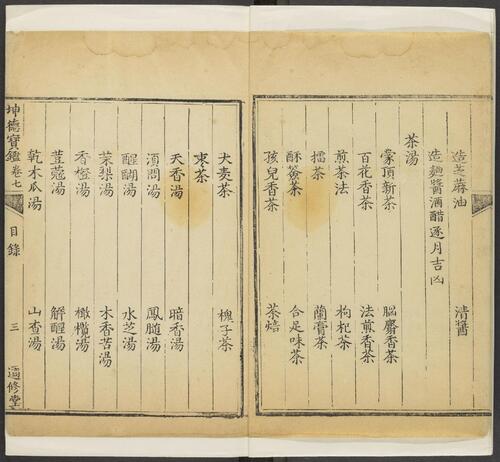 造芝蔴油 清醬
造麯醬酒醋逐月吉凶
茶湯
蒙頂新茶 腦麝香茶
百花香茶 法煎香茶
煎茶法 枸杞茶
擂茶 蘭膏茶
酥簽茶 合足味茶
孩兒香茶 茶焙
大麥茶 槐子茶
棗茶
天香湯 暗香湯
須問湯 鳳髓湯
醍醐湯 水芝湯
茉梨湯 木香苦湯
香橙湯 橄欖湯
荳蔻湯 解酲湯
乾木瓜湯 山查湯
坤德寶鑑 卷七 目錄 三 適修堂